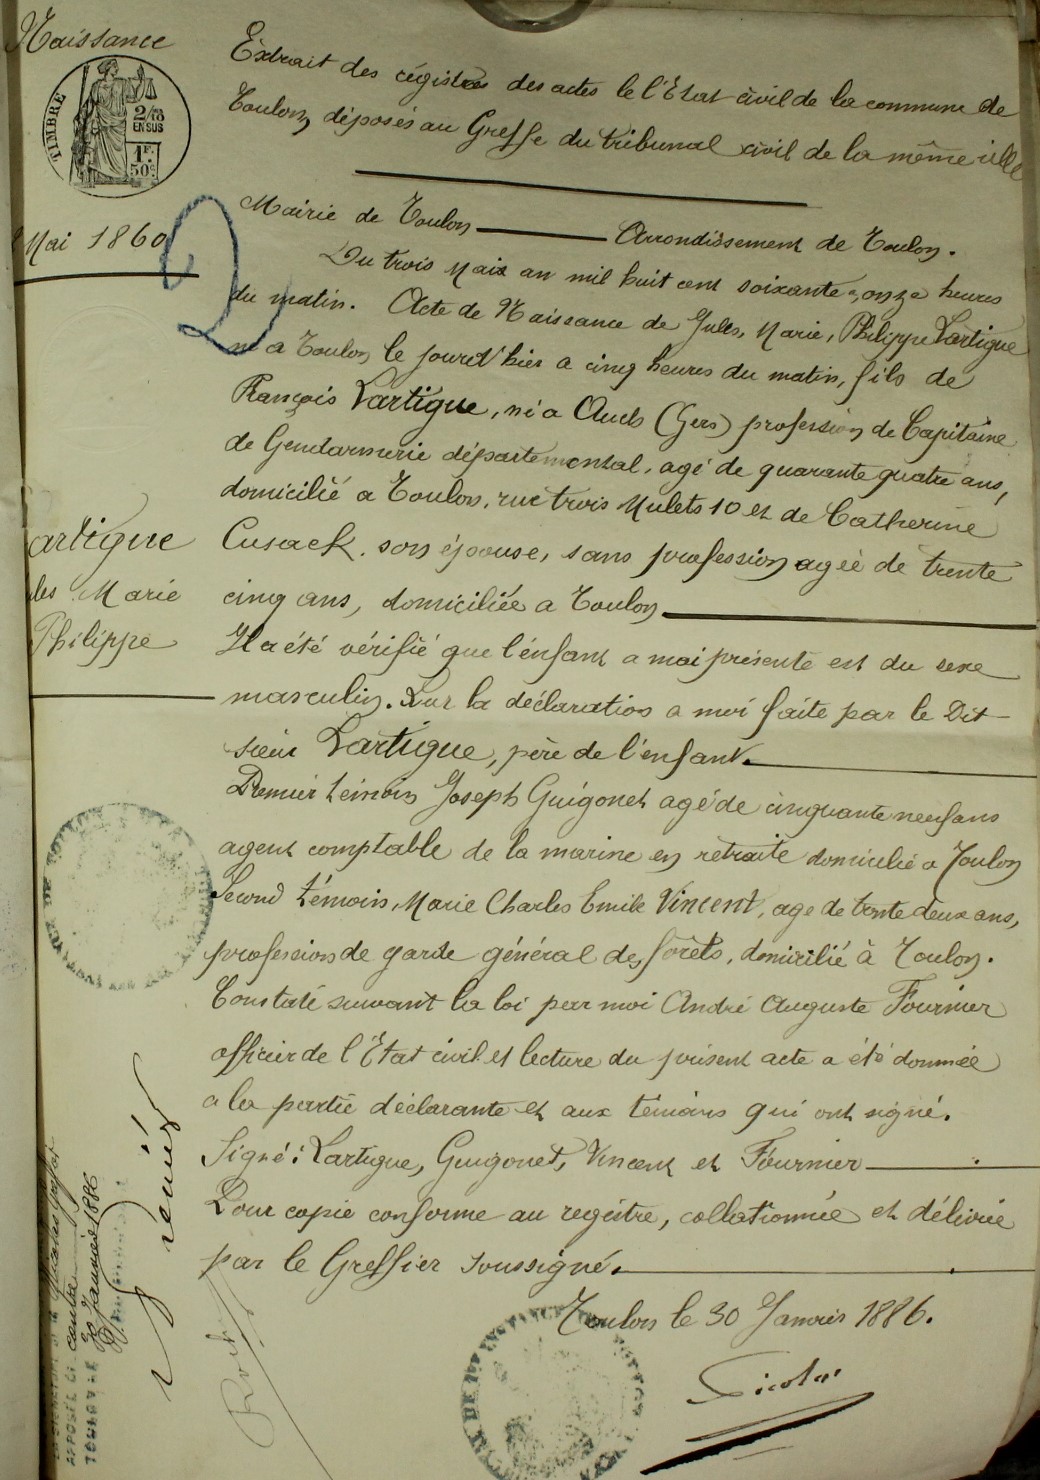 Naissance
TIMBRE
2/10
EN SUS
1F.
50c.
Mai 1860
artigue
les Marie
Philippe
Extrait des régistres des actes le l'Etat civil de la commune de
Toulon, déposés au Greffe du tribunal civil de la même ville
Mairie de Toulon Arrondissement de Toulon.
Du trois Mai an mil huit cent soixante, onze heures
du matin. Acte de Naissance de Jules, Marie, Philippe Lartigue
né a Toulon le jourd'hier a cinq heures du matin, fils de
François Lartigue, né a Auch (Gers) profession de Capitaine
de Gendarmerie départemental, agé de quarante quatre ans,
domicilié a Toulon, rue trois Mulets 10 et de Catherine
Cusack. son épouse, sans profession agée de trente
cinq ans, domiciliée a Toulon
Il a été vérifié que l'enfant a moi présenté est du sexe
masculin. Sur la déclaration a moi faite par le Dit
sieur Lartigue, père de l'enfant.
Premier témoin Joseph Guigonet agé de cinquante neuf ans
agent comptable de la marine en retraite domicilié a Toulon
Second témoin, Marie Charles Emile Vincent, age de trente deux ans,
profession de garde général des forêts, domicilié à Toulon.
Constaté suivant la loi par moi André Auguste Fournier
officier de l'Etat civil et lecture du présent acte a été donnée
a la partie déclarante et aux témoins qui ont signé.
Signé: Lartigue, Guigonet, Vincent et Fournier
Pour copie conforme au registre, collationnée et délivrée
par le Greffier soussigné.
Toulon le 30 Janvier 1886.
APPOSÉE CI contre
TOULON LE 30 Janvier 1886